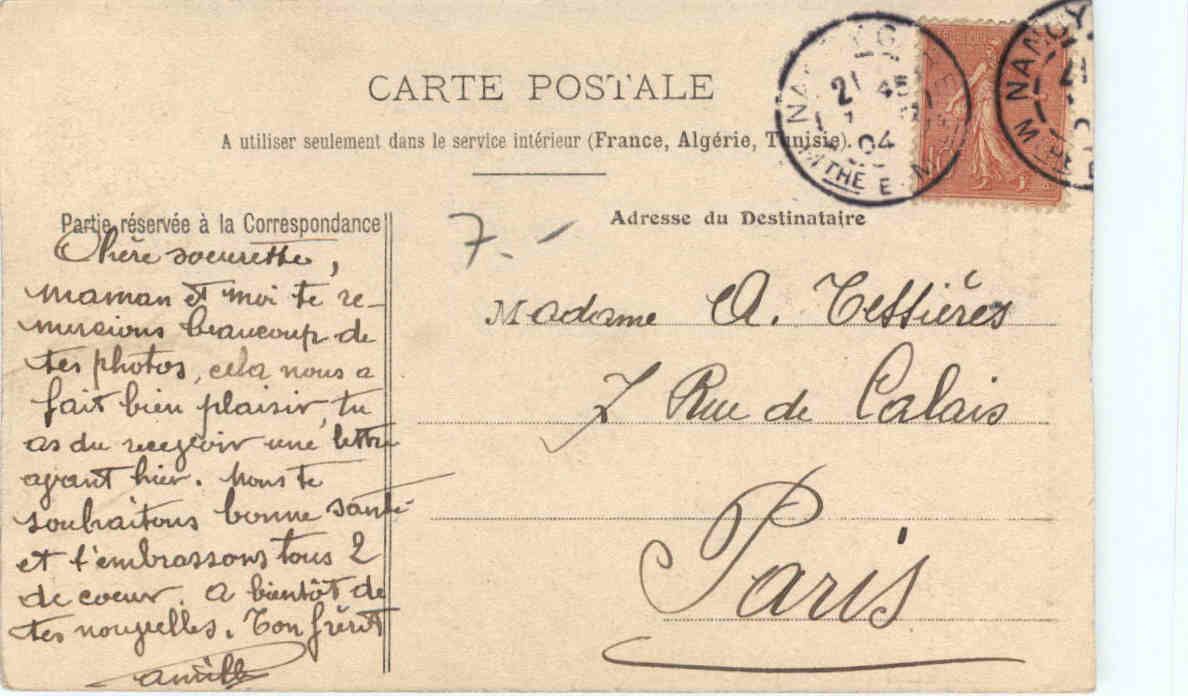 CARTE POSTALE
A utiliser seulement dans le service intérieur (France, Algérie, Tunisie).
Partie réservée à la Correspondance
Chère soeurette,
maman et moi te re-
mercions beaucoup de
tes photos, cela nous a
fait bien plaisir, tu
as du recevoir une lettre
avant hier. Nous te
souhaitons bonne santé
et t'embrassons tous 2
de coeur. A bientôt de
tes nouvelles. Ton frérot
7.-
Adresse du Destinataire
Madame A. Tessières
7 Rue de Calais
Paris
NANCY
21
04
MTHE E-M
NANCY
21
M